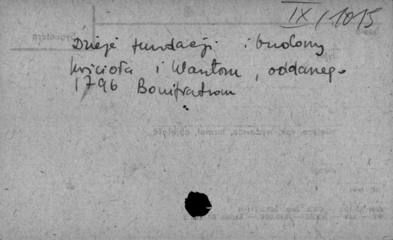 IX/1015
Dzieje fundacji i budowy
kościoła i klasztoru, oddanego
1796 Bonifratrom